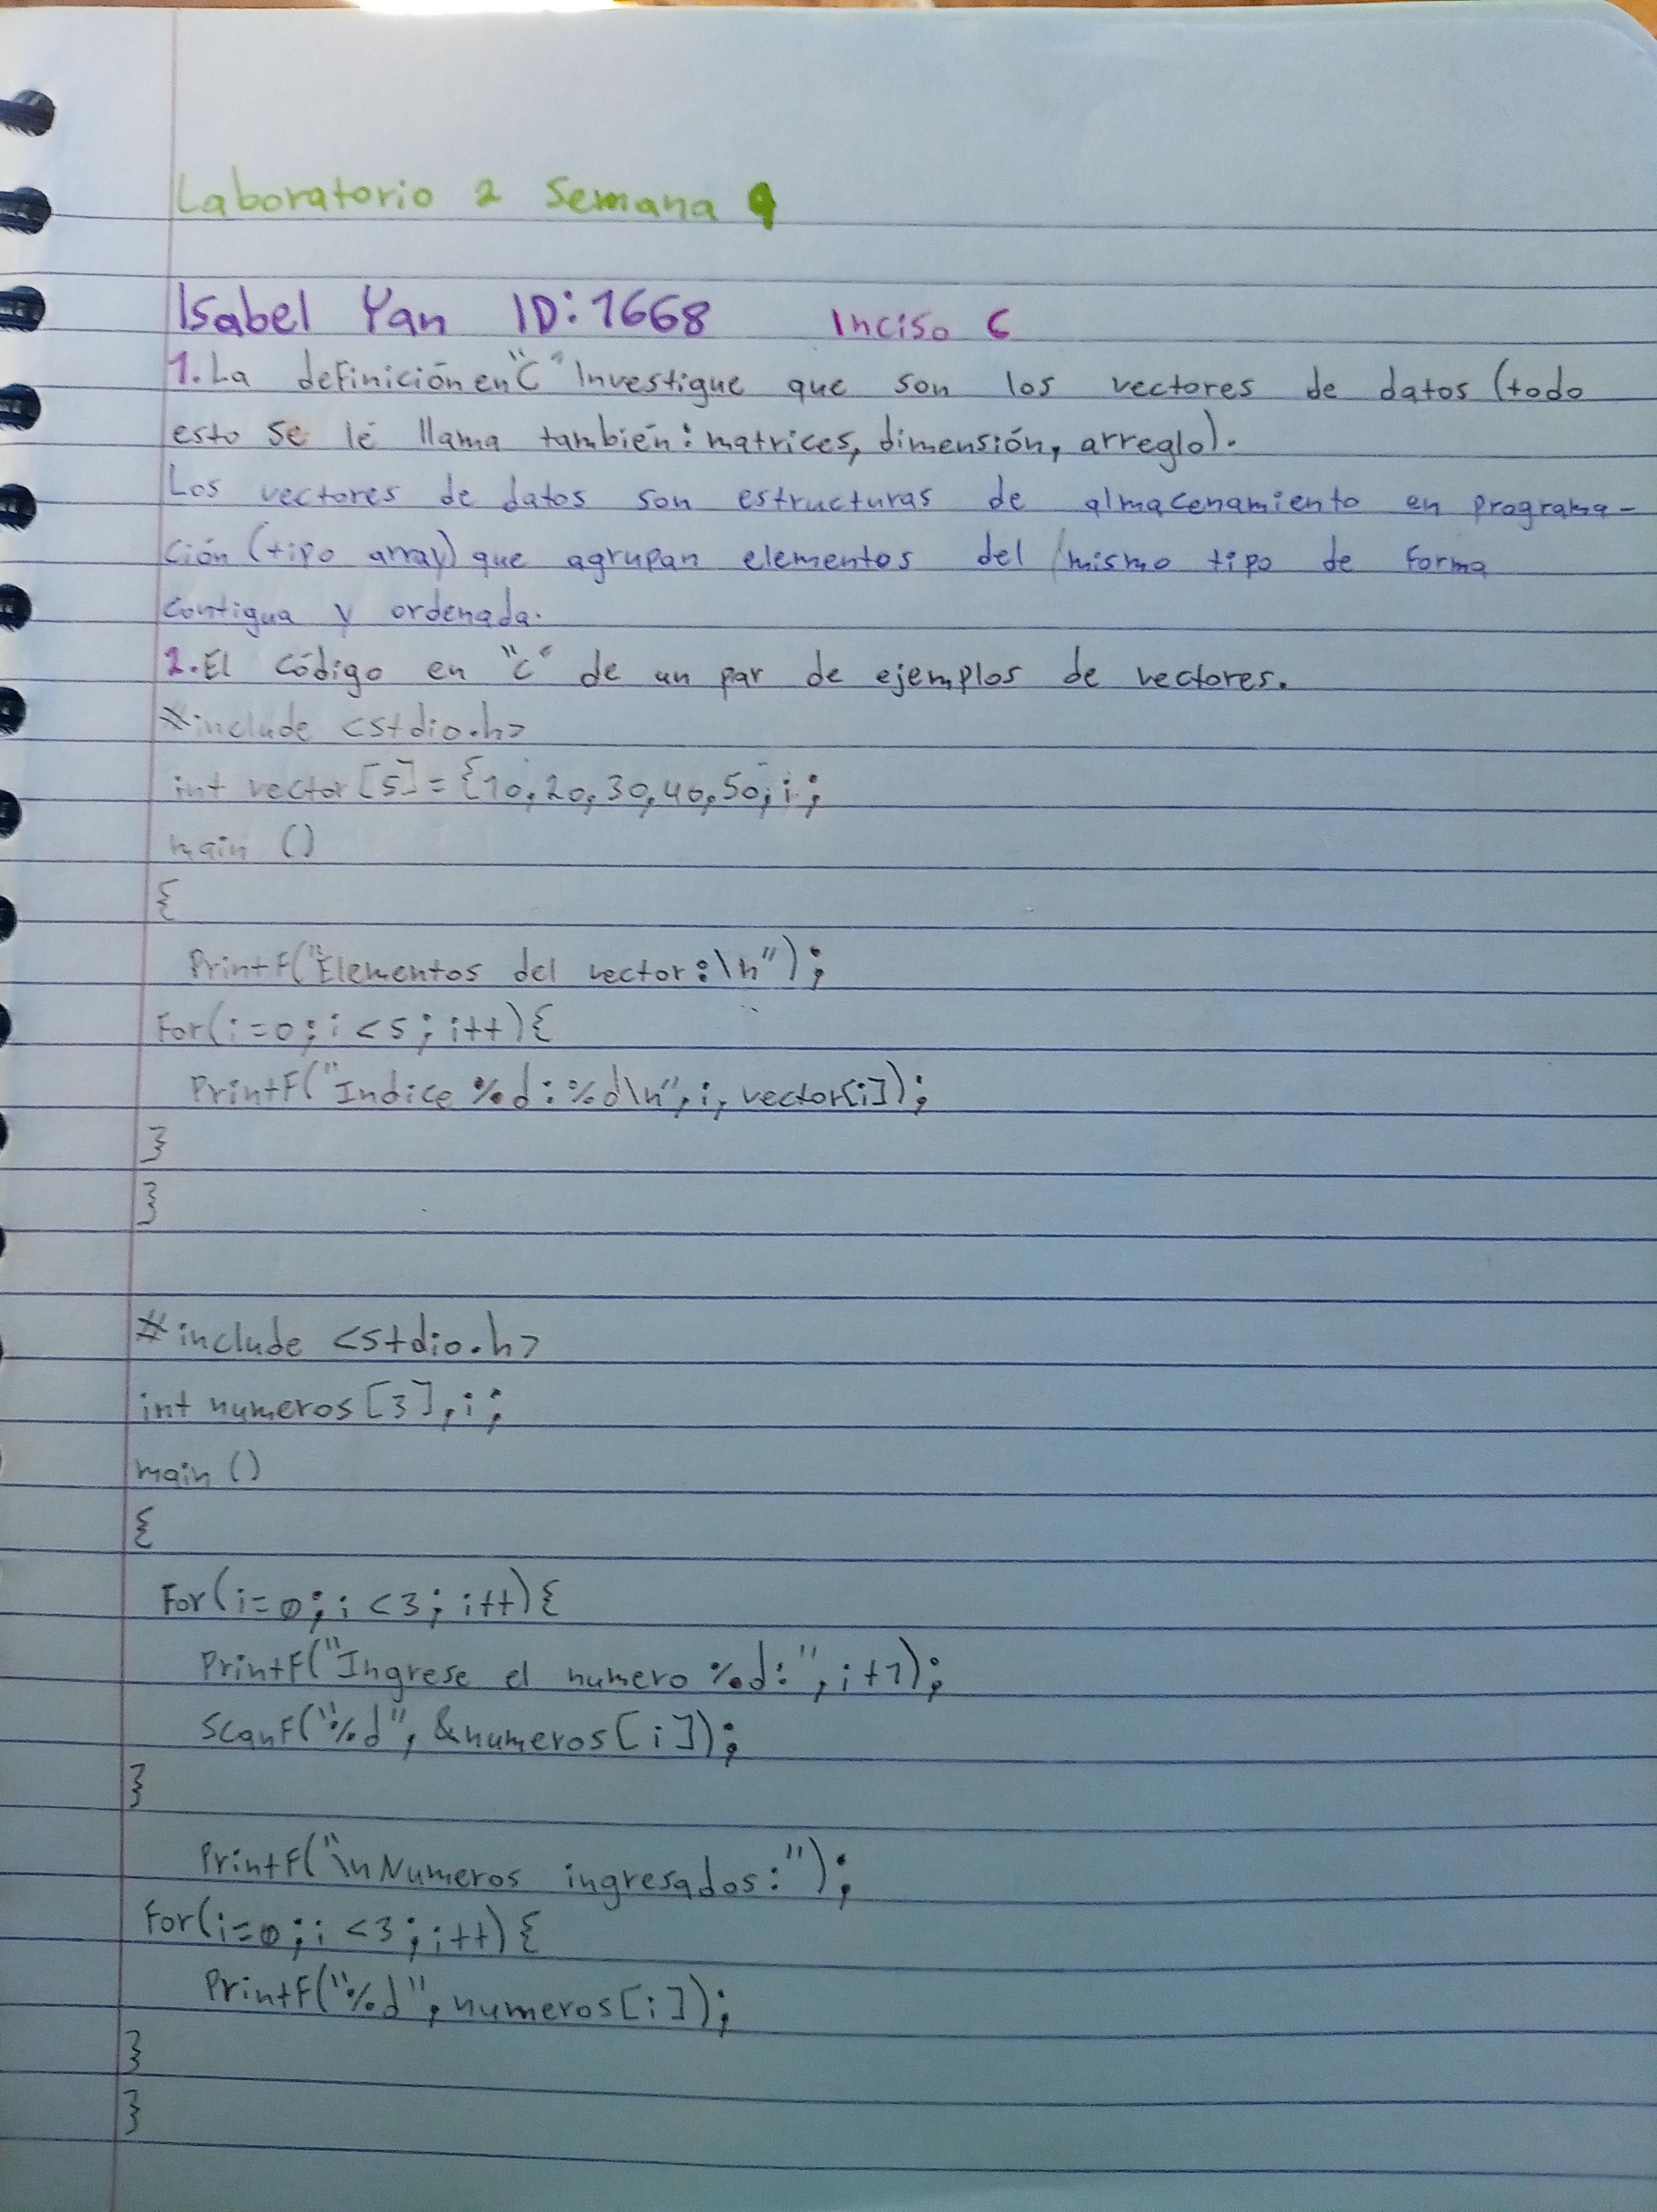 Laboratorio 2 Semana 9
Isabel Yan ID:1668 Inciso C
1.La definición en "C" Investigue que son los vectores de datos (todo
esto se le llama también: matrices, dimensión, arreglo).
Los vectores de datos son estructuras de almacenamiento en programa-
ción (tipo array) que agrupan elementos del mismo tipo de forma
contigua y ordenada.
2.El código en "C" de un par de ejemplos de vectores.
#include <stdio.h>
int vector[5]={10,20,30,40,50,i;
main ()
{
PrintF("Elementos del vector:\n");
For(i=0;i<5;i++){
PrintF("Indice %d:%d\n",i,vector[i]);
}
}
#include <stdio.h>
int numeros[3],i;
main ()
{
For(i=0;i<3;i++){
PrintF("Ingrese el numero %d:",i+1);
ScanF("%d",&numeros[i]);
}
PrintF("\nNumeros ingresados:");
For(i=0;i<3;i++){
PrintF("%d",numeros[i]);
}
}